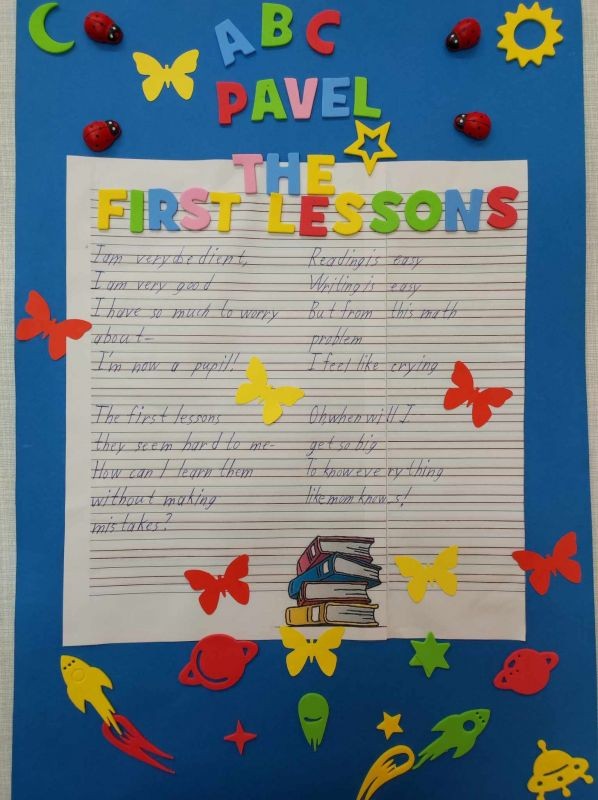 ABC
PAVEL
THE
FIRST LESSONS
I am very obedient,
I am very good
I have so much to worry
about-
I'm now a pupil!
The first lessons
they seem hard to me-
How can I learn them
without making
mistakes?
Reading is easy
Writing is easy
But from this math
problem
I feel like crying
Oh when will I
get so big
To know every thing
like mom knows!